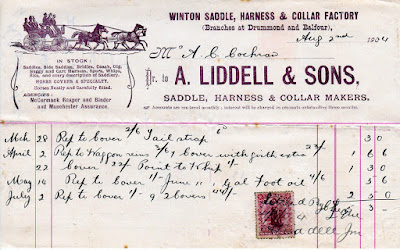 WINTON SADDLE, HARNESS & COLLAR FACTORY
(Branches at Drummond and Balfour),
Aug 2nd 1904
IN STOCK:
Saddles, Side Saddles, Bridles, Coach, Gig,
Buggy and Cart Harness, Spurs, Whips,
Bits, and every description of Saddlery.
HORSE COVERS A SPECIALTY.
Horses Neatly and Carefully fitted.
AGENCIES:
McCormack Reaper and Binder
and Manchester Assurance.
Mr A. C. Cochran
Dr. to A. LIDDELL & SONS,
SADDLE, HARNESS & COLLAR MAKERS.
Accounts are rendered monthly; interest will be charged on accounts outstanding three months.
Mch 28 Rep to Cover 2/6 Tail strap 6d 3 0
April 2 Rep to Waggon reins 2/6 1 Cover with girth extra 1 6 6
22 Cover 22/ Point to Whip 1/- 1 3
May 14 Rep to Cover 1/- June 11 gal Foot oil 5 6
July 2 Rep to Cover 1/- 9 2 Covers